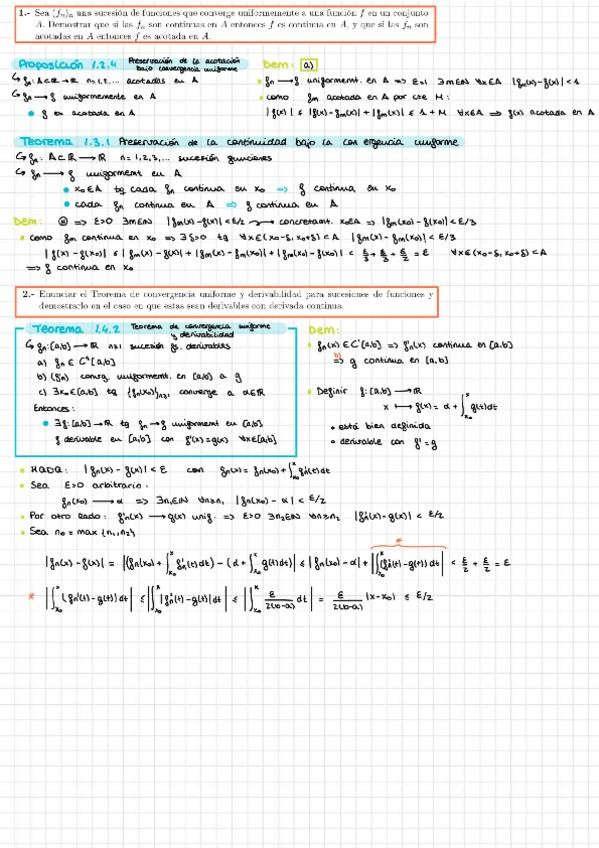 1.- Sea (fn)n una sucesión de funciones que converge uniformemente a una función f en un conjunto
A. Demostrar que si las fn son continuas en A entonces f es continua en A, y que si las fn son
acotadas en A entonces f es acotada en A.
Proposición 1.2.4 Preservación de la acotación
bajo convergencia uniforme
↳ fn: A⊂ℝ → ℝ n=1,2,... acotadas en A
↳ fn → f uniformemente en A
• f es acotada en A
Dem: a)
• fn → f uniformemt. en A => ε=1 ∃m∈ℕ ∀x∈A |fm(x)-f(x)| < 1
• como fm acotada en A por cte M:
|f(x)| ≤ |f(x)-fm(x)| + |fm(x)| ≤ 1 + M ∀x∈A => f(x) acotada en A
Teorema 1.3.1 Preservación de la continuidad bajo la convergencia uniforme
↳ fn: A⊂ℝ → ℝ n=1,2,3,... sucesión funciones
↳ fn → f uniformemt en A
• x₀∈A tq cada fn continua en x₀ => f continua en x₀
• cada fn continua en A => f continua en A
Dem: => ε>0 ∃m∈ℕ |fm(x)-f(x)| < ε/2 concretamt. x₀∈A => |fm(x₀)-f(x₀)| < ε/3
• como fm continua en x₀ => ∃δ>0 tq ∀x∈(x₀-δ, x₀+δ)⊂A |fm(x)-fm(x₀)| < ε/3
|f(x)-f(x₀)| ≤ |fm(x)-f(x)| + |fm(x)-fm(x₀)| + |fm(x₀)-f(x₀)| < ε/3 + ε/3 + ε/2 = ε ∀x∈(x₀-δ, x₀+δ)⊂A
=> f continua en x₀
2.- Enunciar el Teorema de convergencia uniforme y derivabilidad para sucesiones de funciones y
demostrarlo en el caso en que estas sean derivables con derivada continua.
Teorema 1.4.2 Teorema de convergencia uniforme
y derivabilidad
↳ fn: [a,b] → ℝ n≥1 sucesión fs. derivables
a) fn ∈ C¹[a,b]
b) (f'n) converg. uniformemt. en [a,b] a g
c) ∃x₀∈[a,b] tq {fn(x₀)}n≥1 converge a α∈ℝ
Entonces:
• ∃f: [a,b] → ℝ tq fn → f uniformemt en [a,b]
f derivable en [a,b] con f'(x)=g(x) ∀x∈[a,b]
Dem:
• fn(x) ∈ C¹[a,b] => f'n(x) continua en [a,b]
b) => g continua en [a,b]
• Definir f: [a,b] → ℝ
x ↦ f(x) = α + ∫x₀ˣ g(t)dt
• está bien definida
• derivable con f' = g
• HQDQ: |fn(x) - f(x)| < ε con fn(x) = fn(x₀) + ∫x₀ˣ f'n(t)dt
• Sea ε>0 arbitrario:
fn(x₀) → α => ∃n₁∈ℕ ∀n≥n₁ |fn(x₀) - α| < ε/2
• Por otro lado: f'n(x) → g(x) unif. => ε>0 ∃n₂∈ℕ ∀n≥n₂ |f'n(x) - g(x)| < ε/2
• Sea n₀ = max{n₁,n₂}
*
|fn(x) - f(x)| = |(fn(x₀) + ∫x₀ˣ f'n(t)dt) - (α + ∫x₀ˣ g(t)dt)| ≤ |fn(x₀) - α| + |∫x₀ˣ (f'n(t) - g(t))dt| < ε/2 + ε/2 = ε
* |∫x₀ˣ (f'n(t) - g(t))dt| ≤ |∫x₀ˣ |f'n(t) - g(t)|dt| ≤ |∫x₀ˣ ε/2(b-a) dt| = ε/2(b-a) |x-x₀| ≤ ε/2